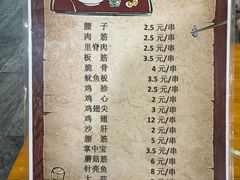 腰子 2.5元/串
肉筋 2.5元/串
里脊肉 2.5元/串
板筋 3.5元/串
脆骨 4元/串
鱿鱼板 3.5元/串
鸡胗 2.5元/串
鸡心 2元/串
鸡翅尖 3元/串
鸡翅 12元/串
沙肝 2元/串
腰宝 5元/串
掌中宝 3.5元/串
蘑菇筋 6元/串
针亮鱼 8元/串